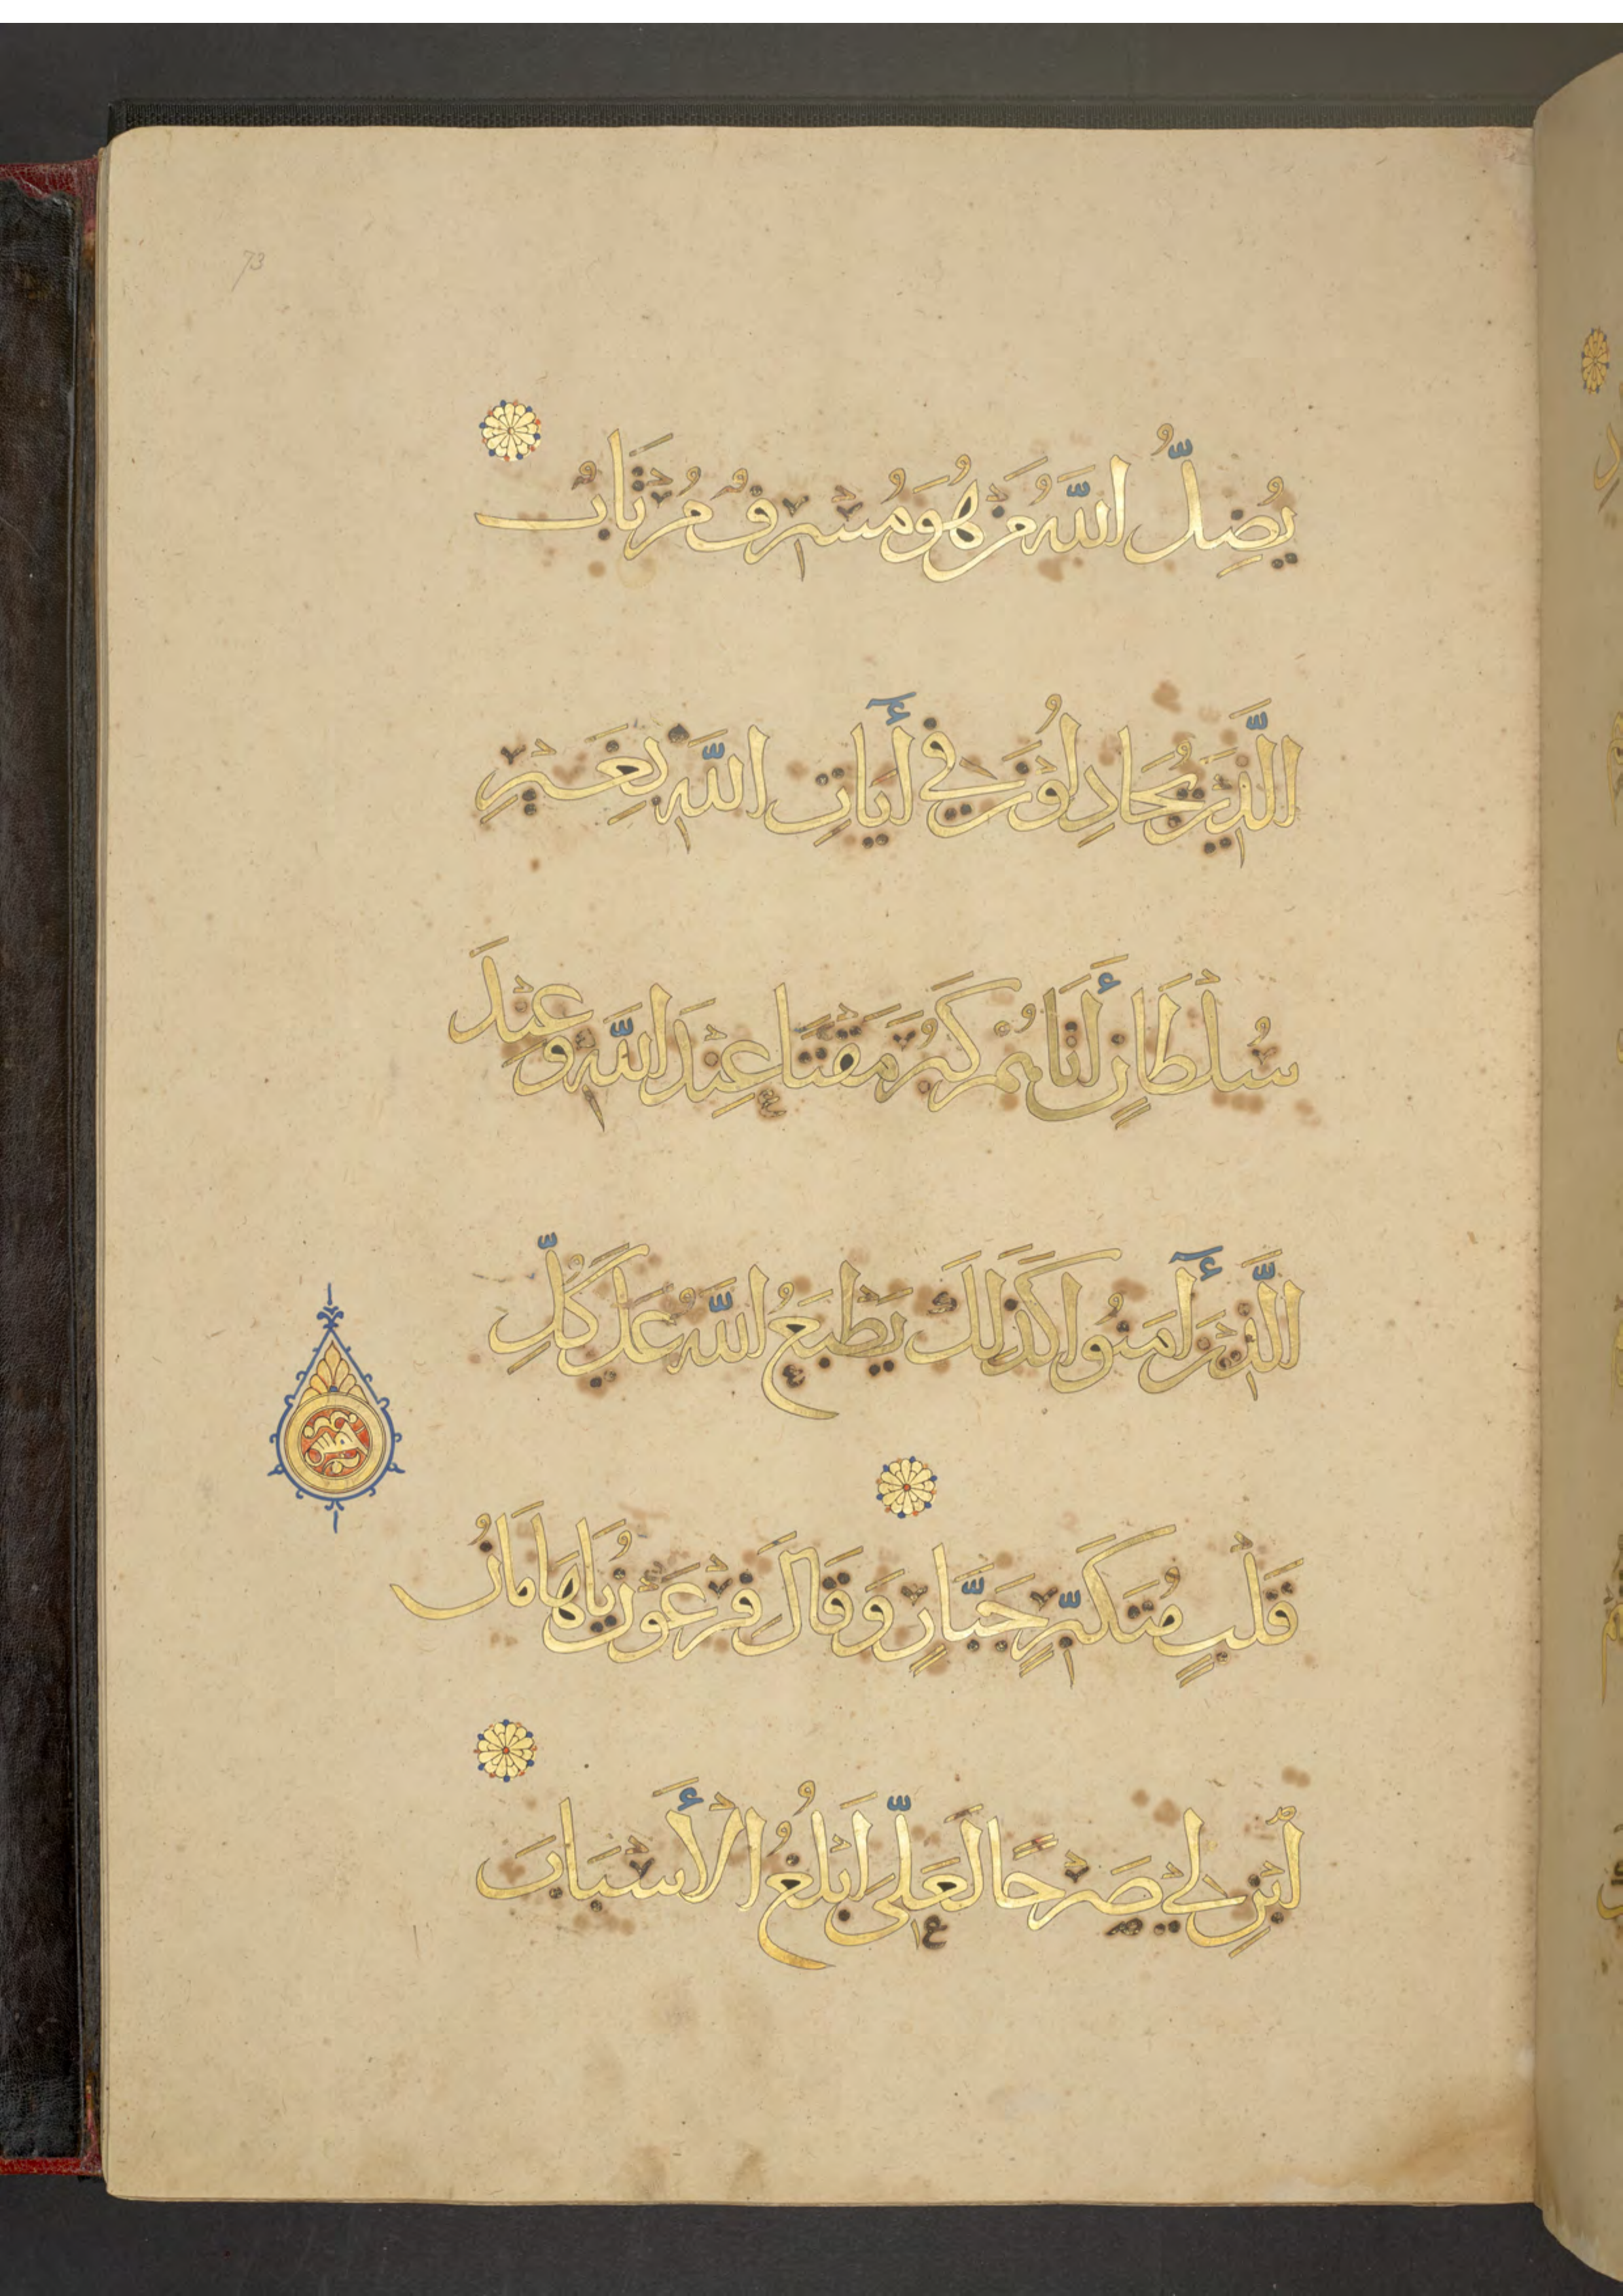 73
يُضِلُّ اللَّهُ مَنْ هُوَ مُسْرِفٌ مُرْتَابٌ
الَّذِينَ يُجَادِلُونَ فِي أَيَاتِ اللَّهِ بِغَيْرِ
سُلْطَانٍ أَتَاهُمْ كَبُرَ مَقْتًا عِنْدَ اللَّهِ وَعِنْدَ
الَّذِينَ آمَنُوا كَذَلِكَ يَطْبَعُ اللَّهُ عَلَى كُلِّ
خمس
قَلْبٍ مُتَكَبِّرٍ جَبَّارٍ وَقَالَ فِرْعَوْنُ يَا هَامَانُ
ابْنِ لِي صَرْحًا لَعَلِّي أَبْلُغُ الْأَسْبَابَ